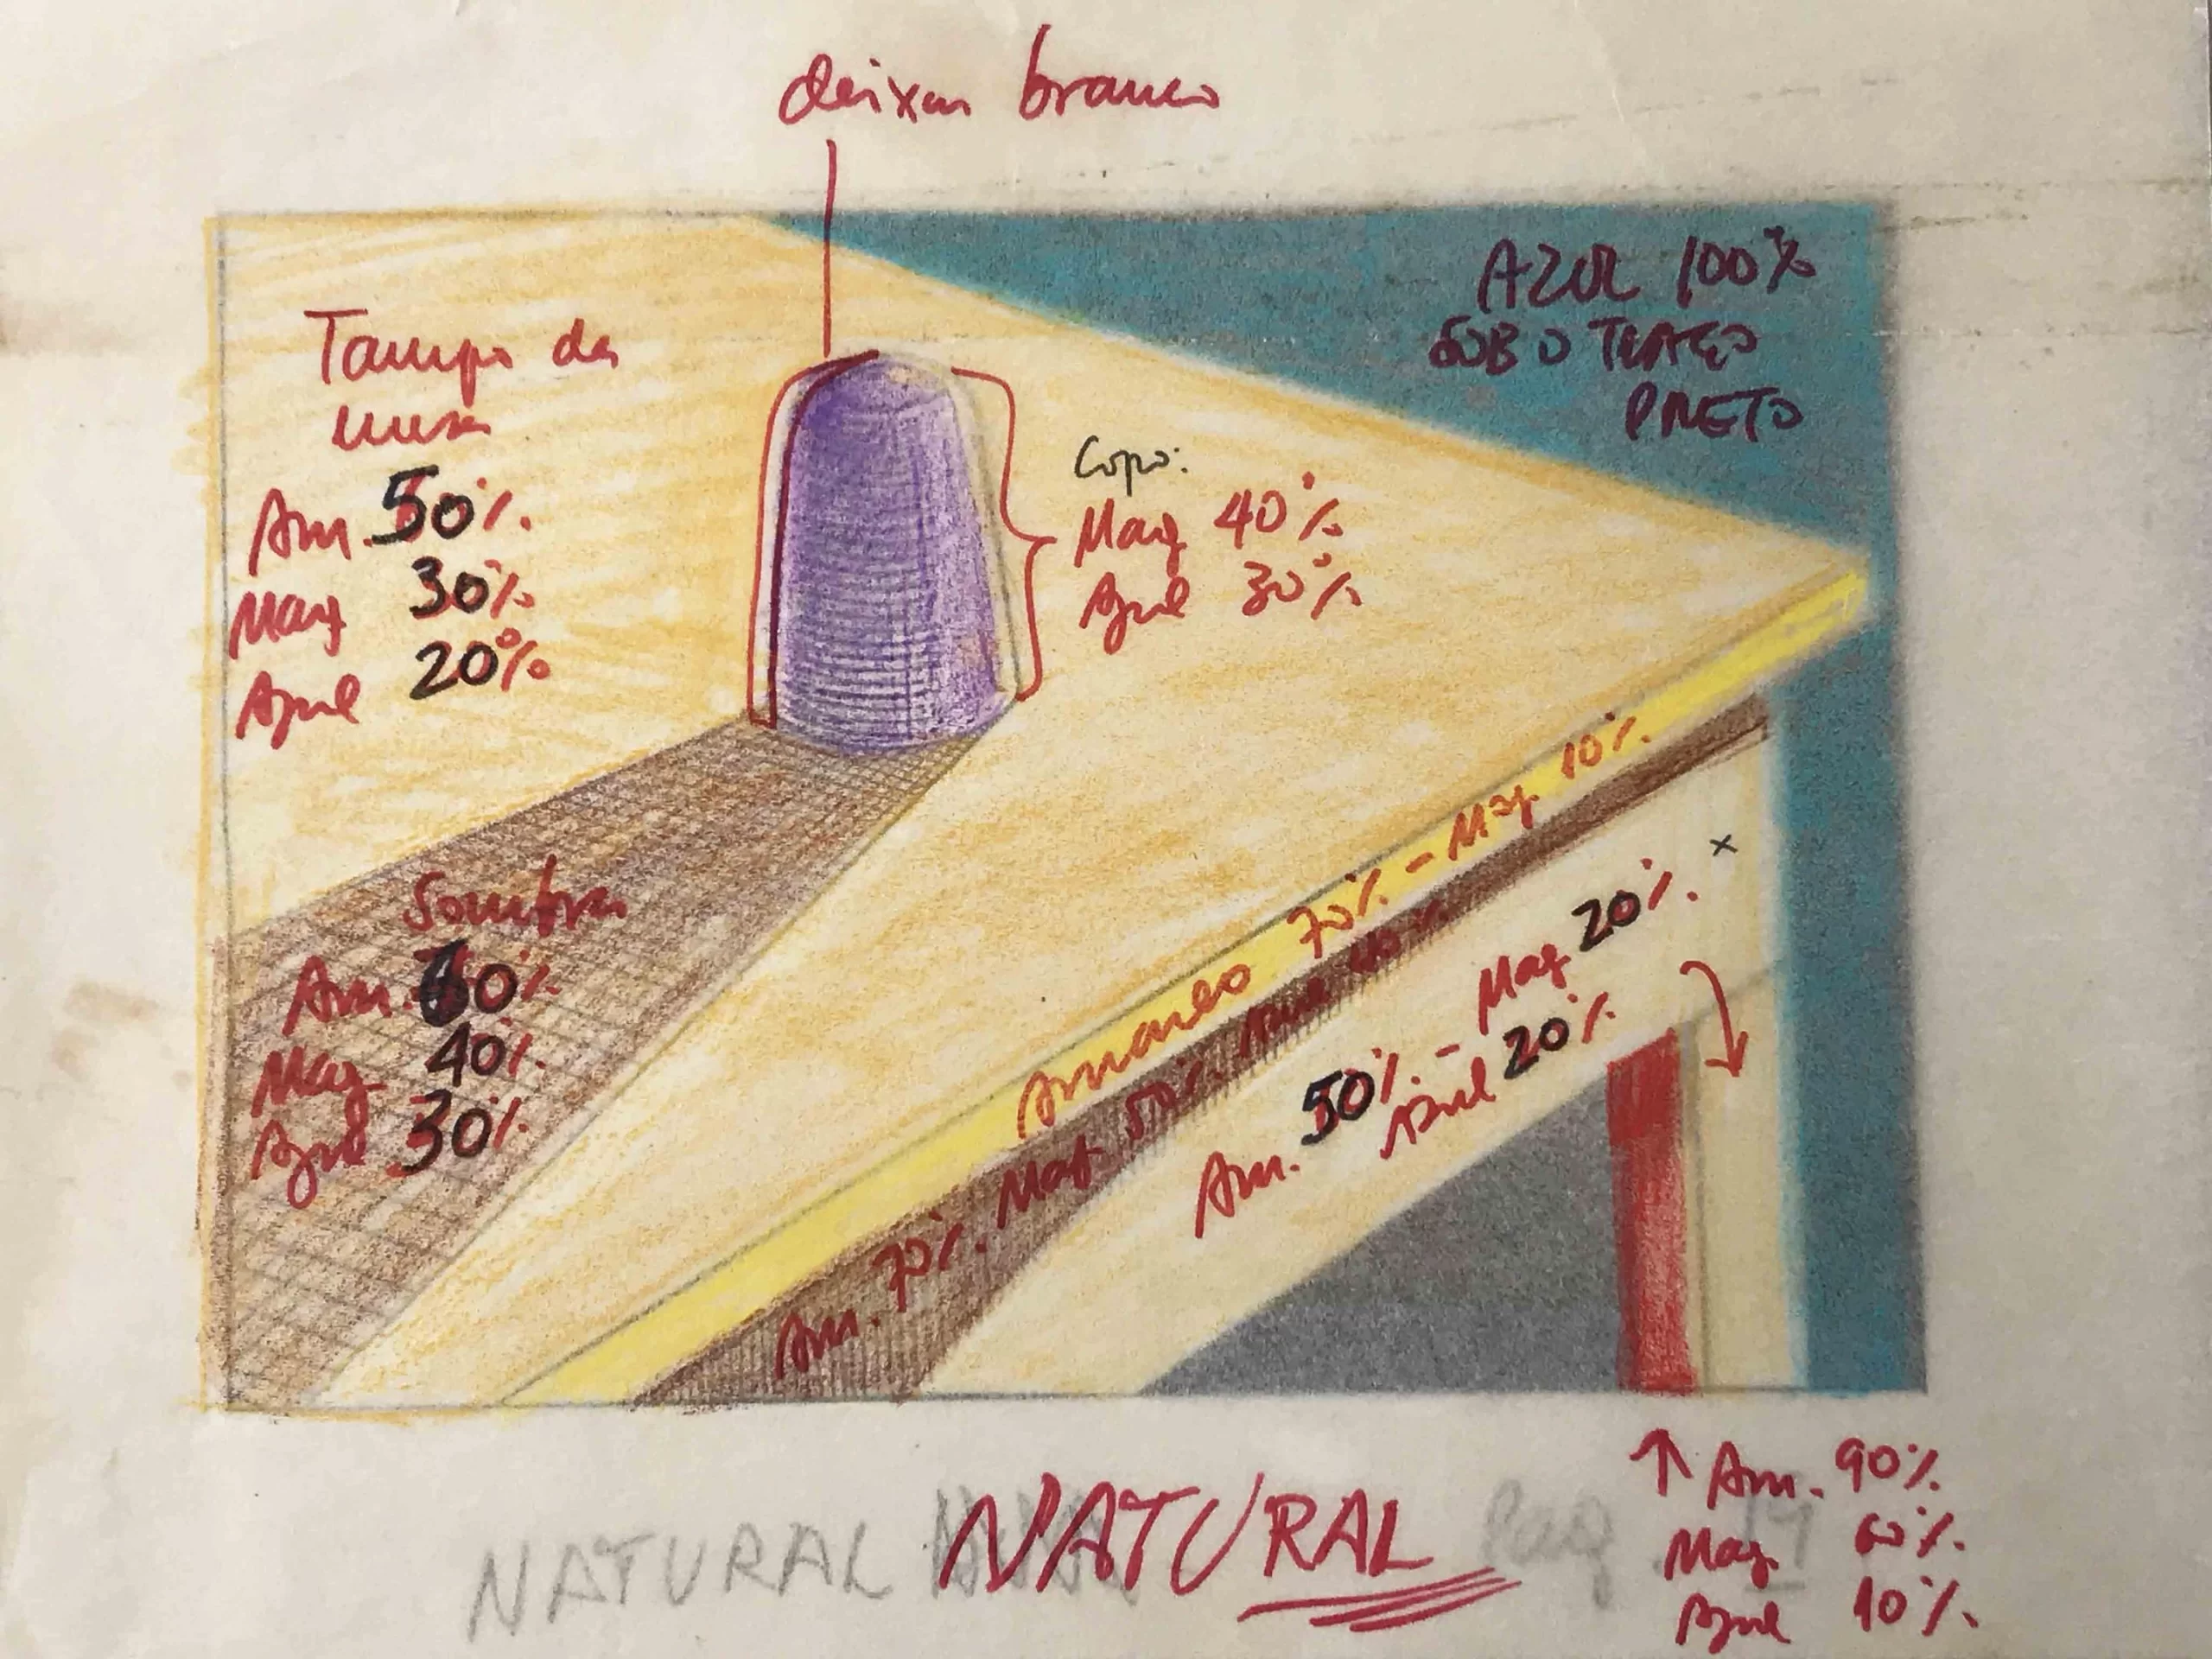 deixar branco
AZUL 100%
SOB O TRAÇO
PRETO
Tampo da
mesa
Am. 50%
Mag 30%
Azul 20%
Copo:
Mag 40%
Azul 30%
Sombra
Am. 60%
Mag 40%
Azul 30%
Amarelo 70% - Mag 10%
Am. 70%. Mag. 50%. Azul 40%
Am. 50% - Mag 20%
Azul 20%
x
NATURAL
NATURAL Pag
↑ Am. 90%
Mag. 60%
Azul 10%